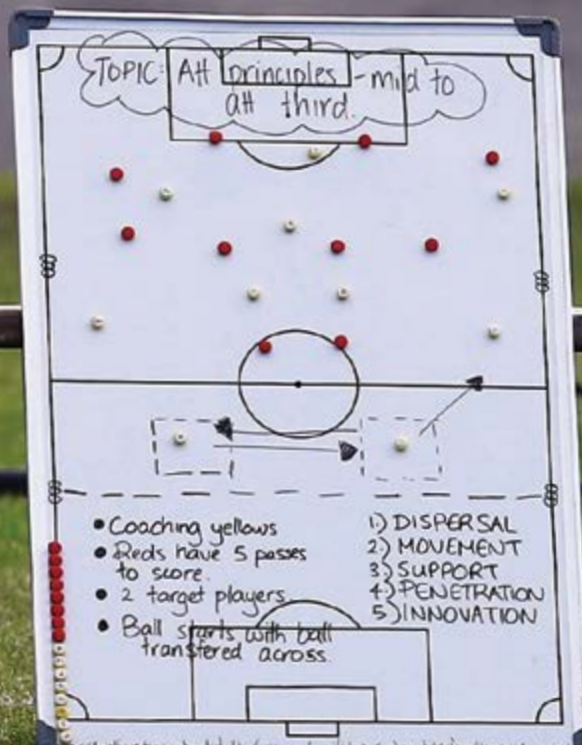 TOPIC: Att principles - mid to
att third.
• Coaching yellows
• Reds have 5 passes
to score.
• 2 target players
• Ball starts with ball
transfered across.
1.) DISPERSAL
2.) MOVEMENT
3.) SUPPORT
4.) PENETRATION
5.) INNOVATION